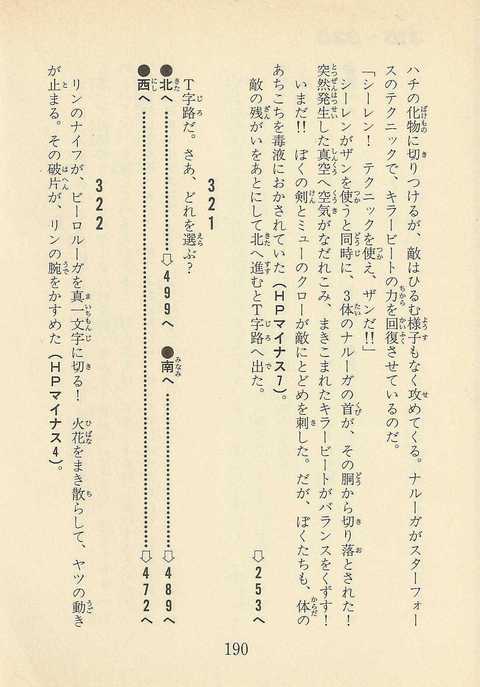 ハチの化物に切りつけるが、敵はひるむ様子もなく攻めてくる。ナルーガがスターフォー
スのテクニックで、キラービートの力を回復させているのだ。
「シーレン！　テクニックを使え、ザンだ!!」
シーレンがザンを使うと同時に、3体のナルーガの首が、その胴から切り落とされた！
突然発生した真空へ空気がなだれこみ、まきこまれたキラービートがバランスをくずす！
いまだ!!　ぼくの剣とミューのクローが敵にとどめを刺した。だが、ぼくたちも、体の
あちこちを毒液におかされていた（HPマイナス7）。
敵の残がいをあとにして北へ進むとT字路へ出た。
⇨253へ
321
T字路だ。さあ、どれを選ぶ？
●北へ⇨499へ　●南へ⇨489へ
●西へ⇨472へ
322
リンのナイフが、ビーロルーガを真一文字に切る！　火花をまき散らして、ヤツの動き
が止まる。その破片が、リンの腕をかすめた（HPマイナス4）。
190